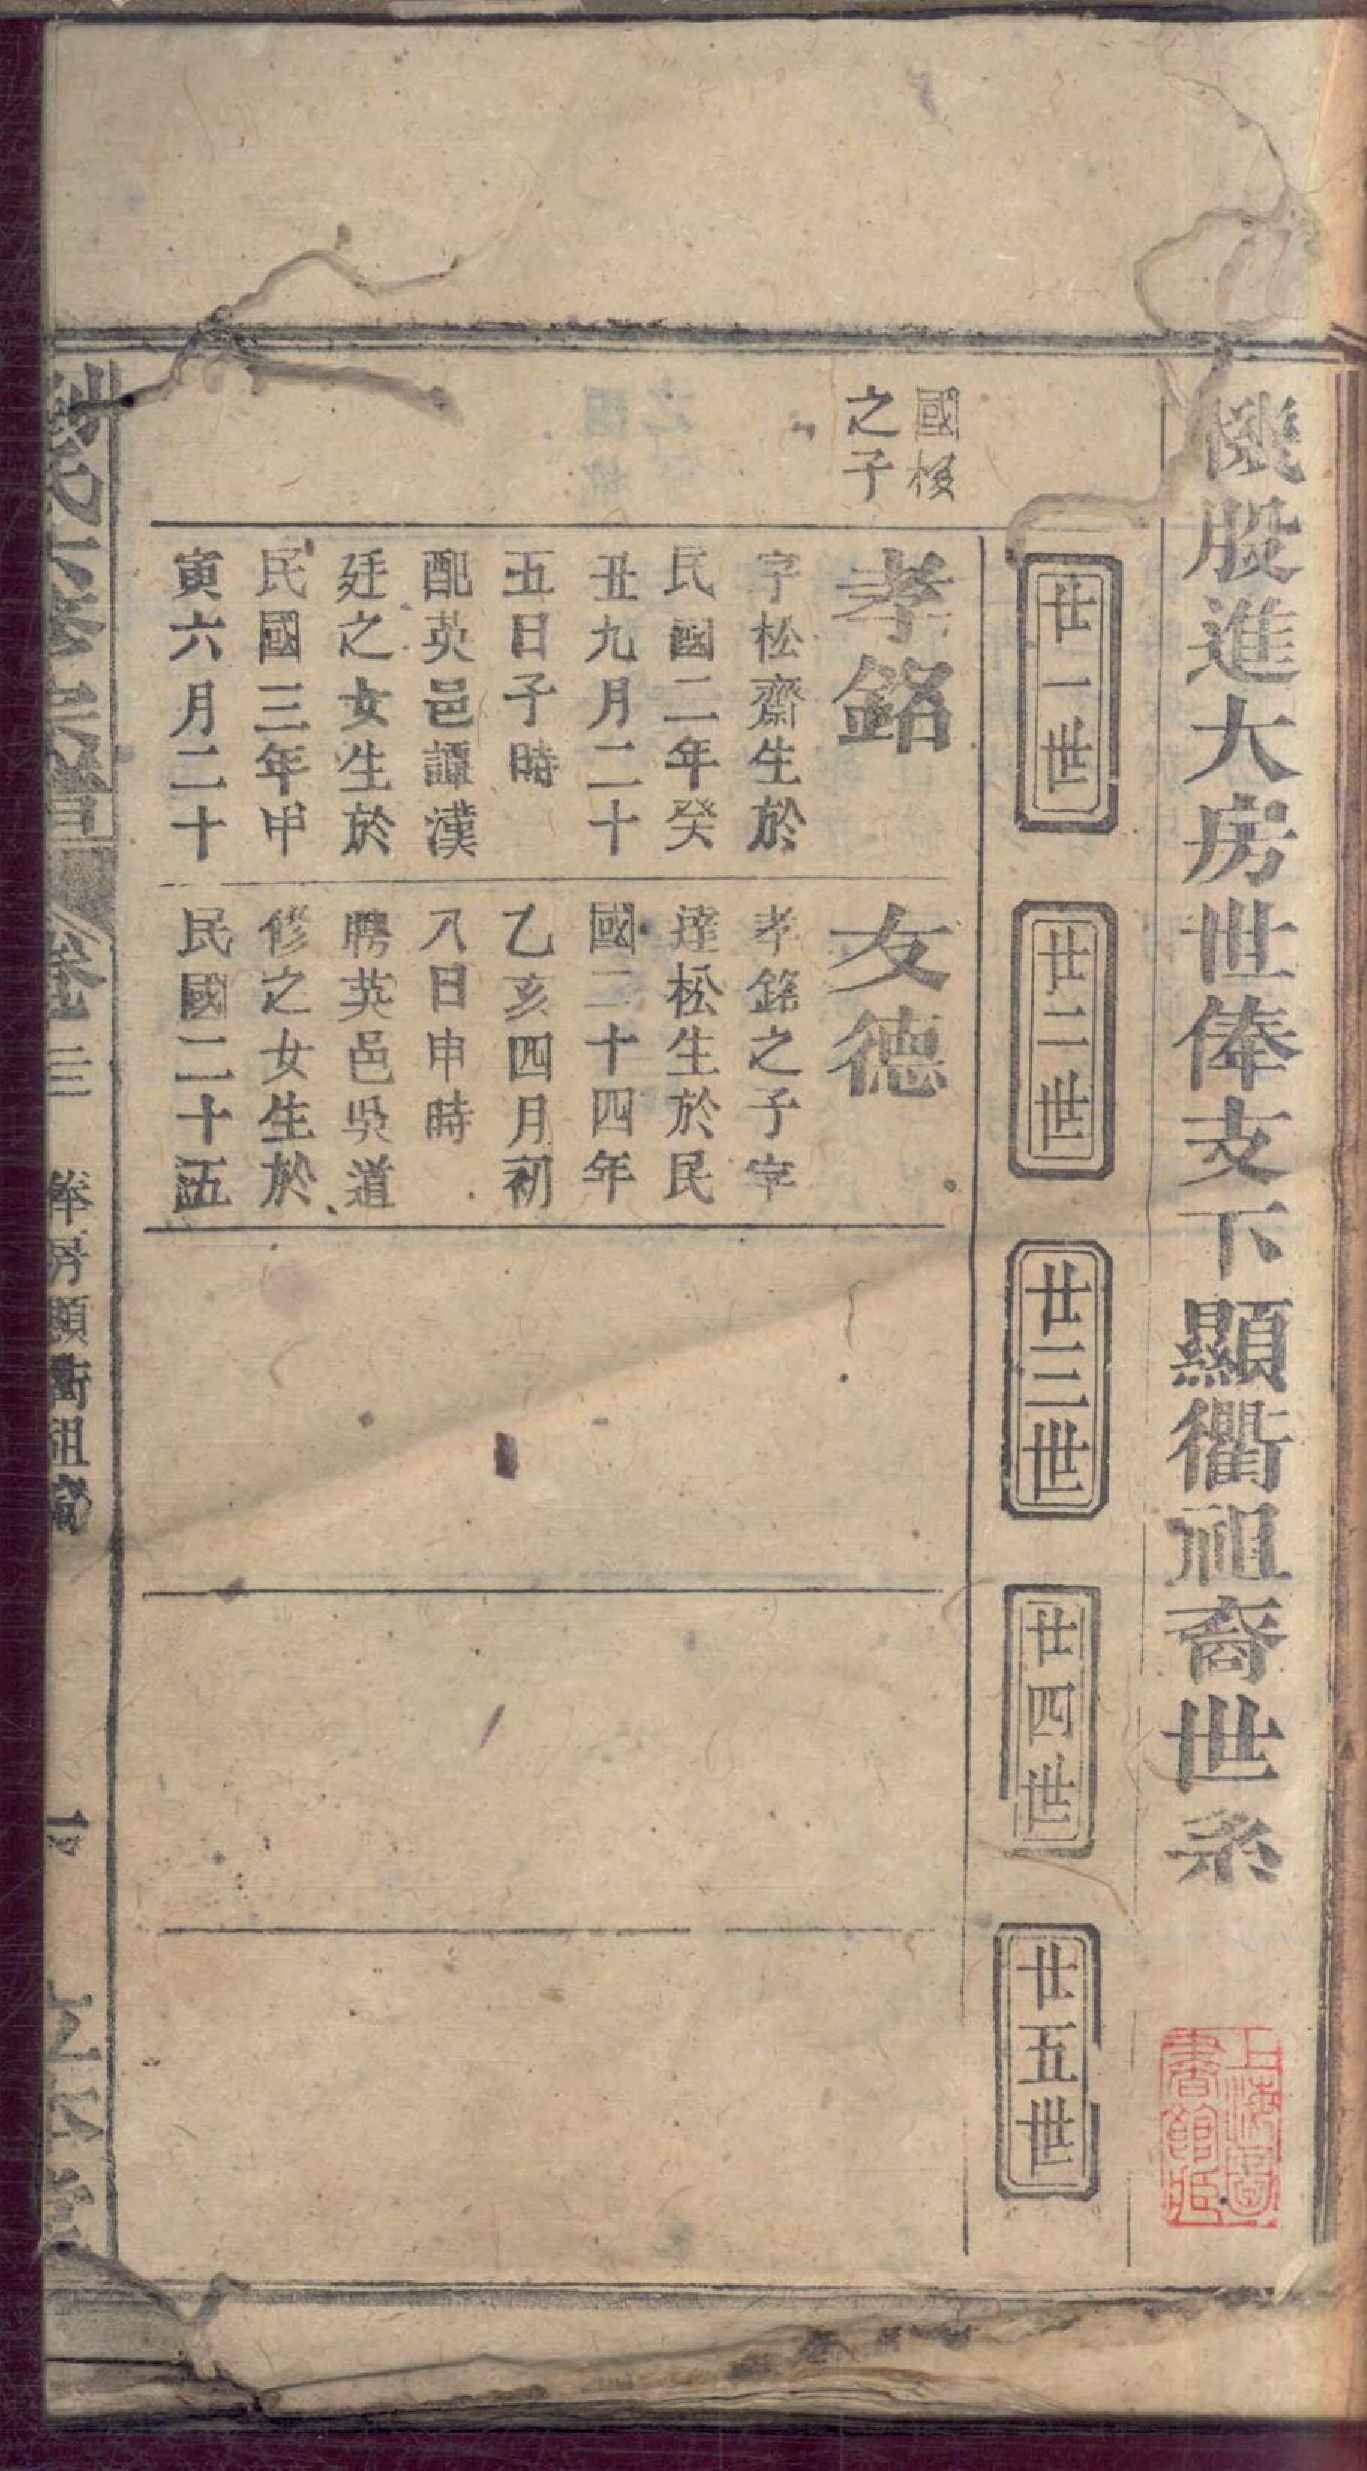 機股進大房世俸支下顯衢祖裔世系
上海圖
書館藏
廿一世
廿二世
廿三世
廿四世
廿五世
國
之子
孝銘
字松齋生於
民國二年癸
丑九月二十
五日子時
配英邑譚漢
廷之女生於
民國三年甲
寅六月二十
友德
孝銘之子字
達松生於民
國二十四年
乙亥四月初
八日申時
聘英邑吳道
修之女生於
民國二十五
氏六修宗譜
卷三
俸房顯衢祖裔
一